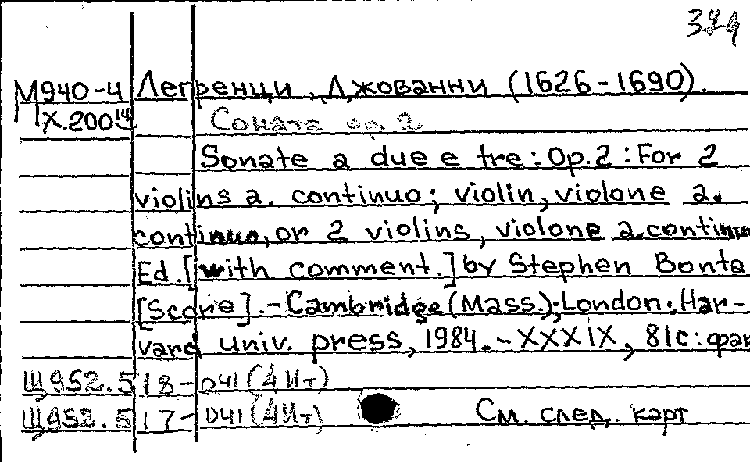 384
М940-4 Легренци, Джованни (1626-1690).
IX.200 14 Соната ор. 2
Sonate a due e tre: Op.2: For 2
violins a. continuo; violin, violone a.
continuo, or 2 violins, violone a. continuo
Ed. [with comment.] by Stephen Bonta
[Score]. - Cambridge (Mass.); London: Har-
vard univ. press, 1984. - XXXIX, 81c: фак
Щ952.518-041(4Ит)
Щ952.517-041(4Ит) См. след. карт